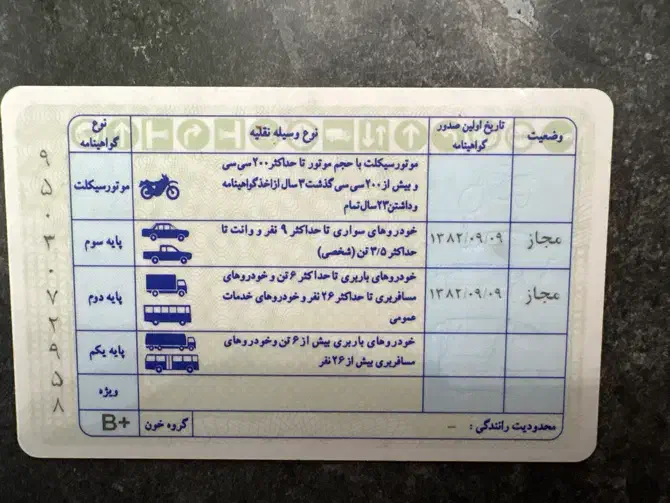 نوع گواهینامه
نوع وسیله نقلیه
تاریخ اولین صدور گواهینامه
وضعیت
موتورسیکلت
موتورسیکلت با حجم موتور تا حداکثر ۲۰۰ سی سی
و بیش از ۲۰۰ سی سی گذشت ۳ سال ازاخذ گواهینامه
وداشتن ۲۳ سال تمام
پایه سوم
خودروهای سواری تا حداکثر ۹ نفر و وانت تا
حداکثر ۳/۵ تن (شخصی)
۱۳۸۲/۰۹/۰۹
مجاز
پایه دوم
خودروهای باربری تا حداکثر ۶ تن و خودروهای
مسافربری تا حداکثر ۲۶ نفر و خودروهای خدمات
عمومی
۱۳۸۲/۰۹/۰۹
مجاز
پایه یکم
خودروهای باربری بیش از ۶ تن وخودروهای
مسافربری بیش از ۲۶ نفر
ویژه
محدودیت رانندگی : –
گروه خون
B+
۹۵۰۳۰۷۲۹۵۸